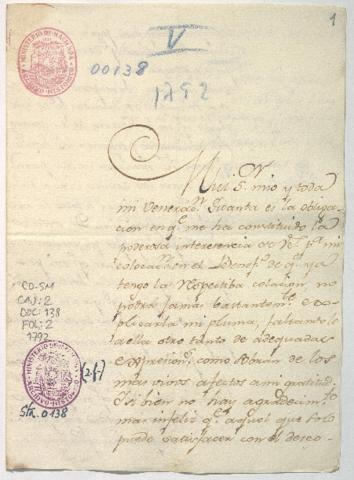 1
V
00138
1792
MINISTERIO DE HACIENDA
ARCHIVO HISTORICO
Mui Sr. mio y toda
mi venerazn. Quanta es la obliga-
cion en qe. me ha constituido la
poderosa intercencia de Vd. pa. mi
colocazn. en el Benefo. de qe. ya
tengo la colacion, no
podra jamas bastantemte. ex-
plicarla mi pluma, faltandole
a ella otro tanto de adequadas
expresiones, como sobran de los
mas vivos afectos a mi gratitud.
Y si bien no hay agradecimto.
mas infeliz qe. aquel que solo
puede satisfacer con el deseo-
CO-SM
CAJ: 2
DOC: 138
FOL: 2
1792
(2f)
Str. 0138